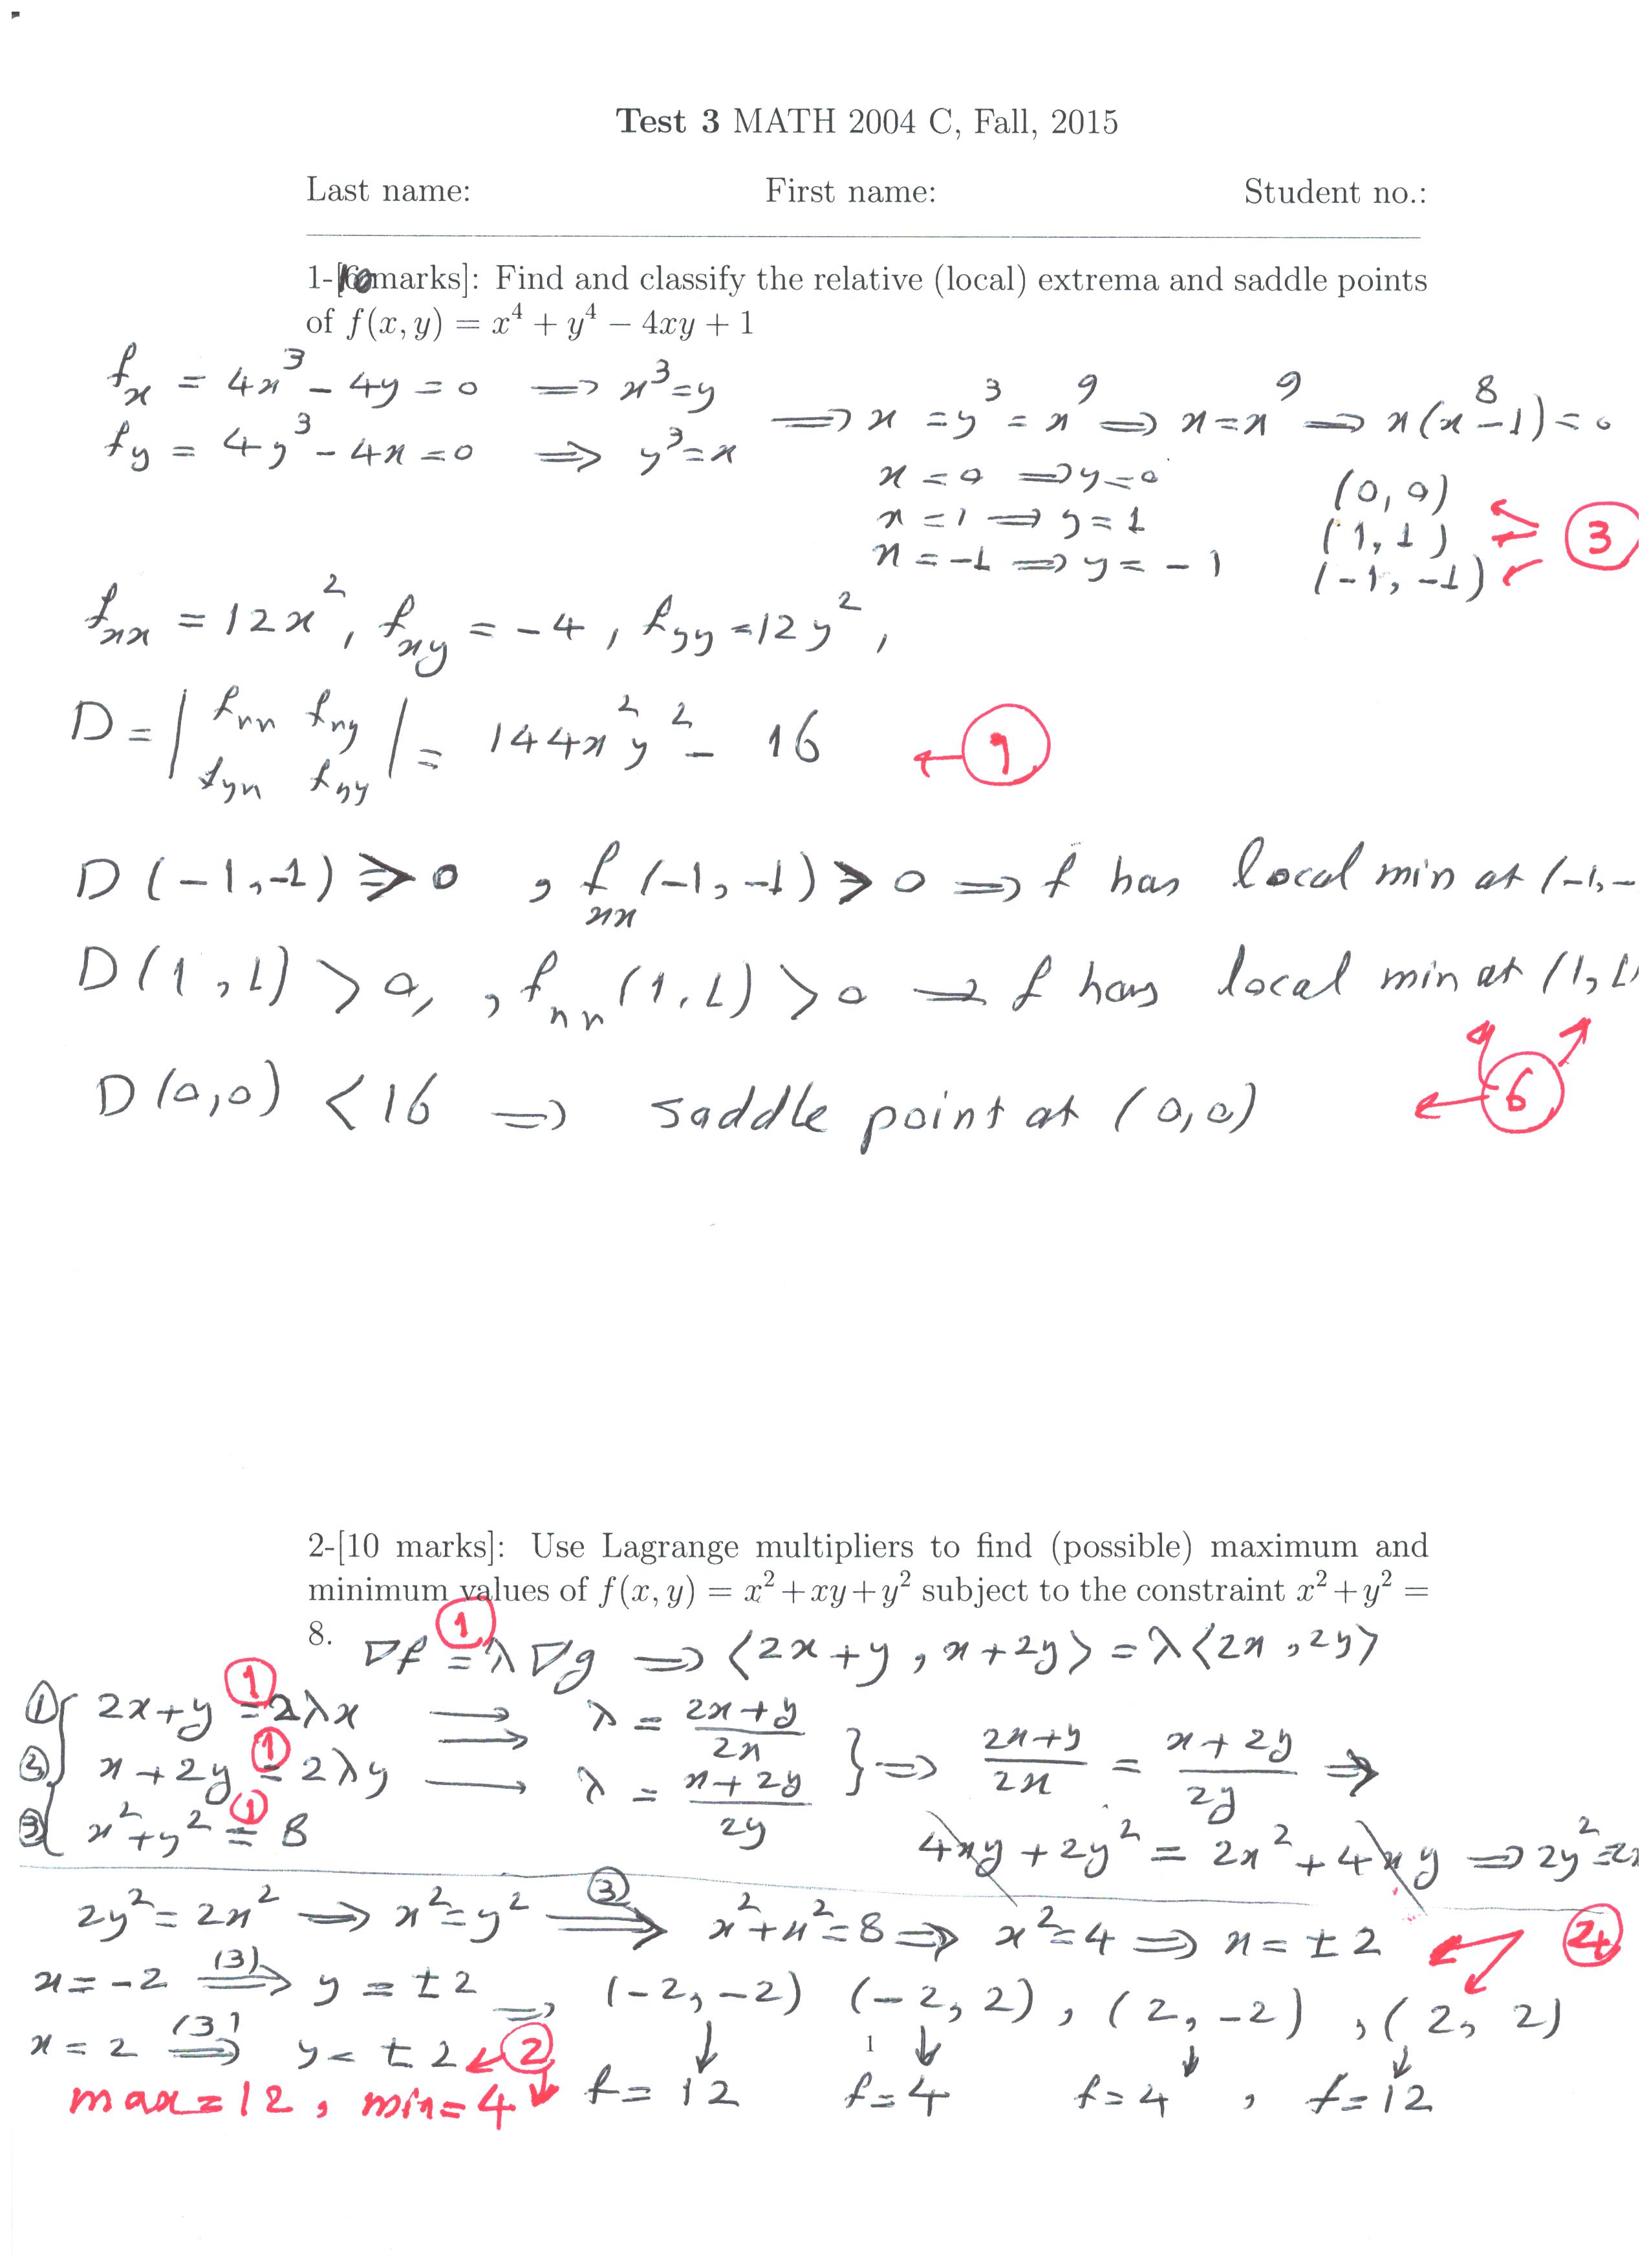 Test 3 MATH 2004 C, Fall, 2015
Last name: First name: Student no.:
1-[10 marks]: Find and classify the relative (local) extrema and saddle points
of f(x, y) = x⁴ + y⁴ − 4xy + 1
f_x = 4x³ - 4y = 0 ⟹ x³ = y
f_y = 4y³ - 4x = 0 ⟹ y³ = x
⟹ x = y³ = x⁹ ⟹ x = x⁹ ⟹ x(x⁸-1) = 0
x = 0 ⟹ y = 0 (0, 0)
x = 1 ⟹ y = 1 (1, 1) ③
x = -1 ⟹ y = -1 (-1, -1)
f_xx = 12x², f_xy = -4, f_yy = 12y²,
D = | f_xx f_xy
f_yx f_yy | = 144x²y² - 16 ← ①
D(-1,-1) > 0, f_xx(-1,-1) > 0 ⟹ f has local min at (-1, -
D(1,1) > 0, , f_xx(1,1) > 0 ⟹ f has local min at (1, 1)
D(0,0) < 16 ⟹ saddle point at (0,0) ← ⑥
2-[10 marks]: Use Lagrange multipliers to find (possible) maximum and
minimum values of f(x, y) = x² + xy + y² subject to the constraint x² + y² =
8. ∇f = λ∇g ⟹ ⟨2x+y, x+2y⟩ = λ⟨2x, 2y⟩ ①
① 2x+y = 2λx ① ⟶ λ = (2x+y)/2x
② x+2y = 2λy ① ⟶ λ = (x+2y)/2y } ⟹ (2x+y)/2x = (x+2y)/2y ⟹
③ x²+y² = 8 ① 4xy + 2y² = 2x² + 4xy ⟹ 2y² = 2x
2y² = 2x² ⟹ x² = y² ⟹③ x²+x² = 8 ⟹ x² = 4 ⟹ x = ±2
x = -2 ⟹(3) y = ±2 ⟹ (-2, -2) (-2, 2), (2, -2), (2, 2)
x = 2 ⟹(3) y = ±2 ② 1
max = 12, min = 4 f = 12 f = 4 f = 4, f = 12